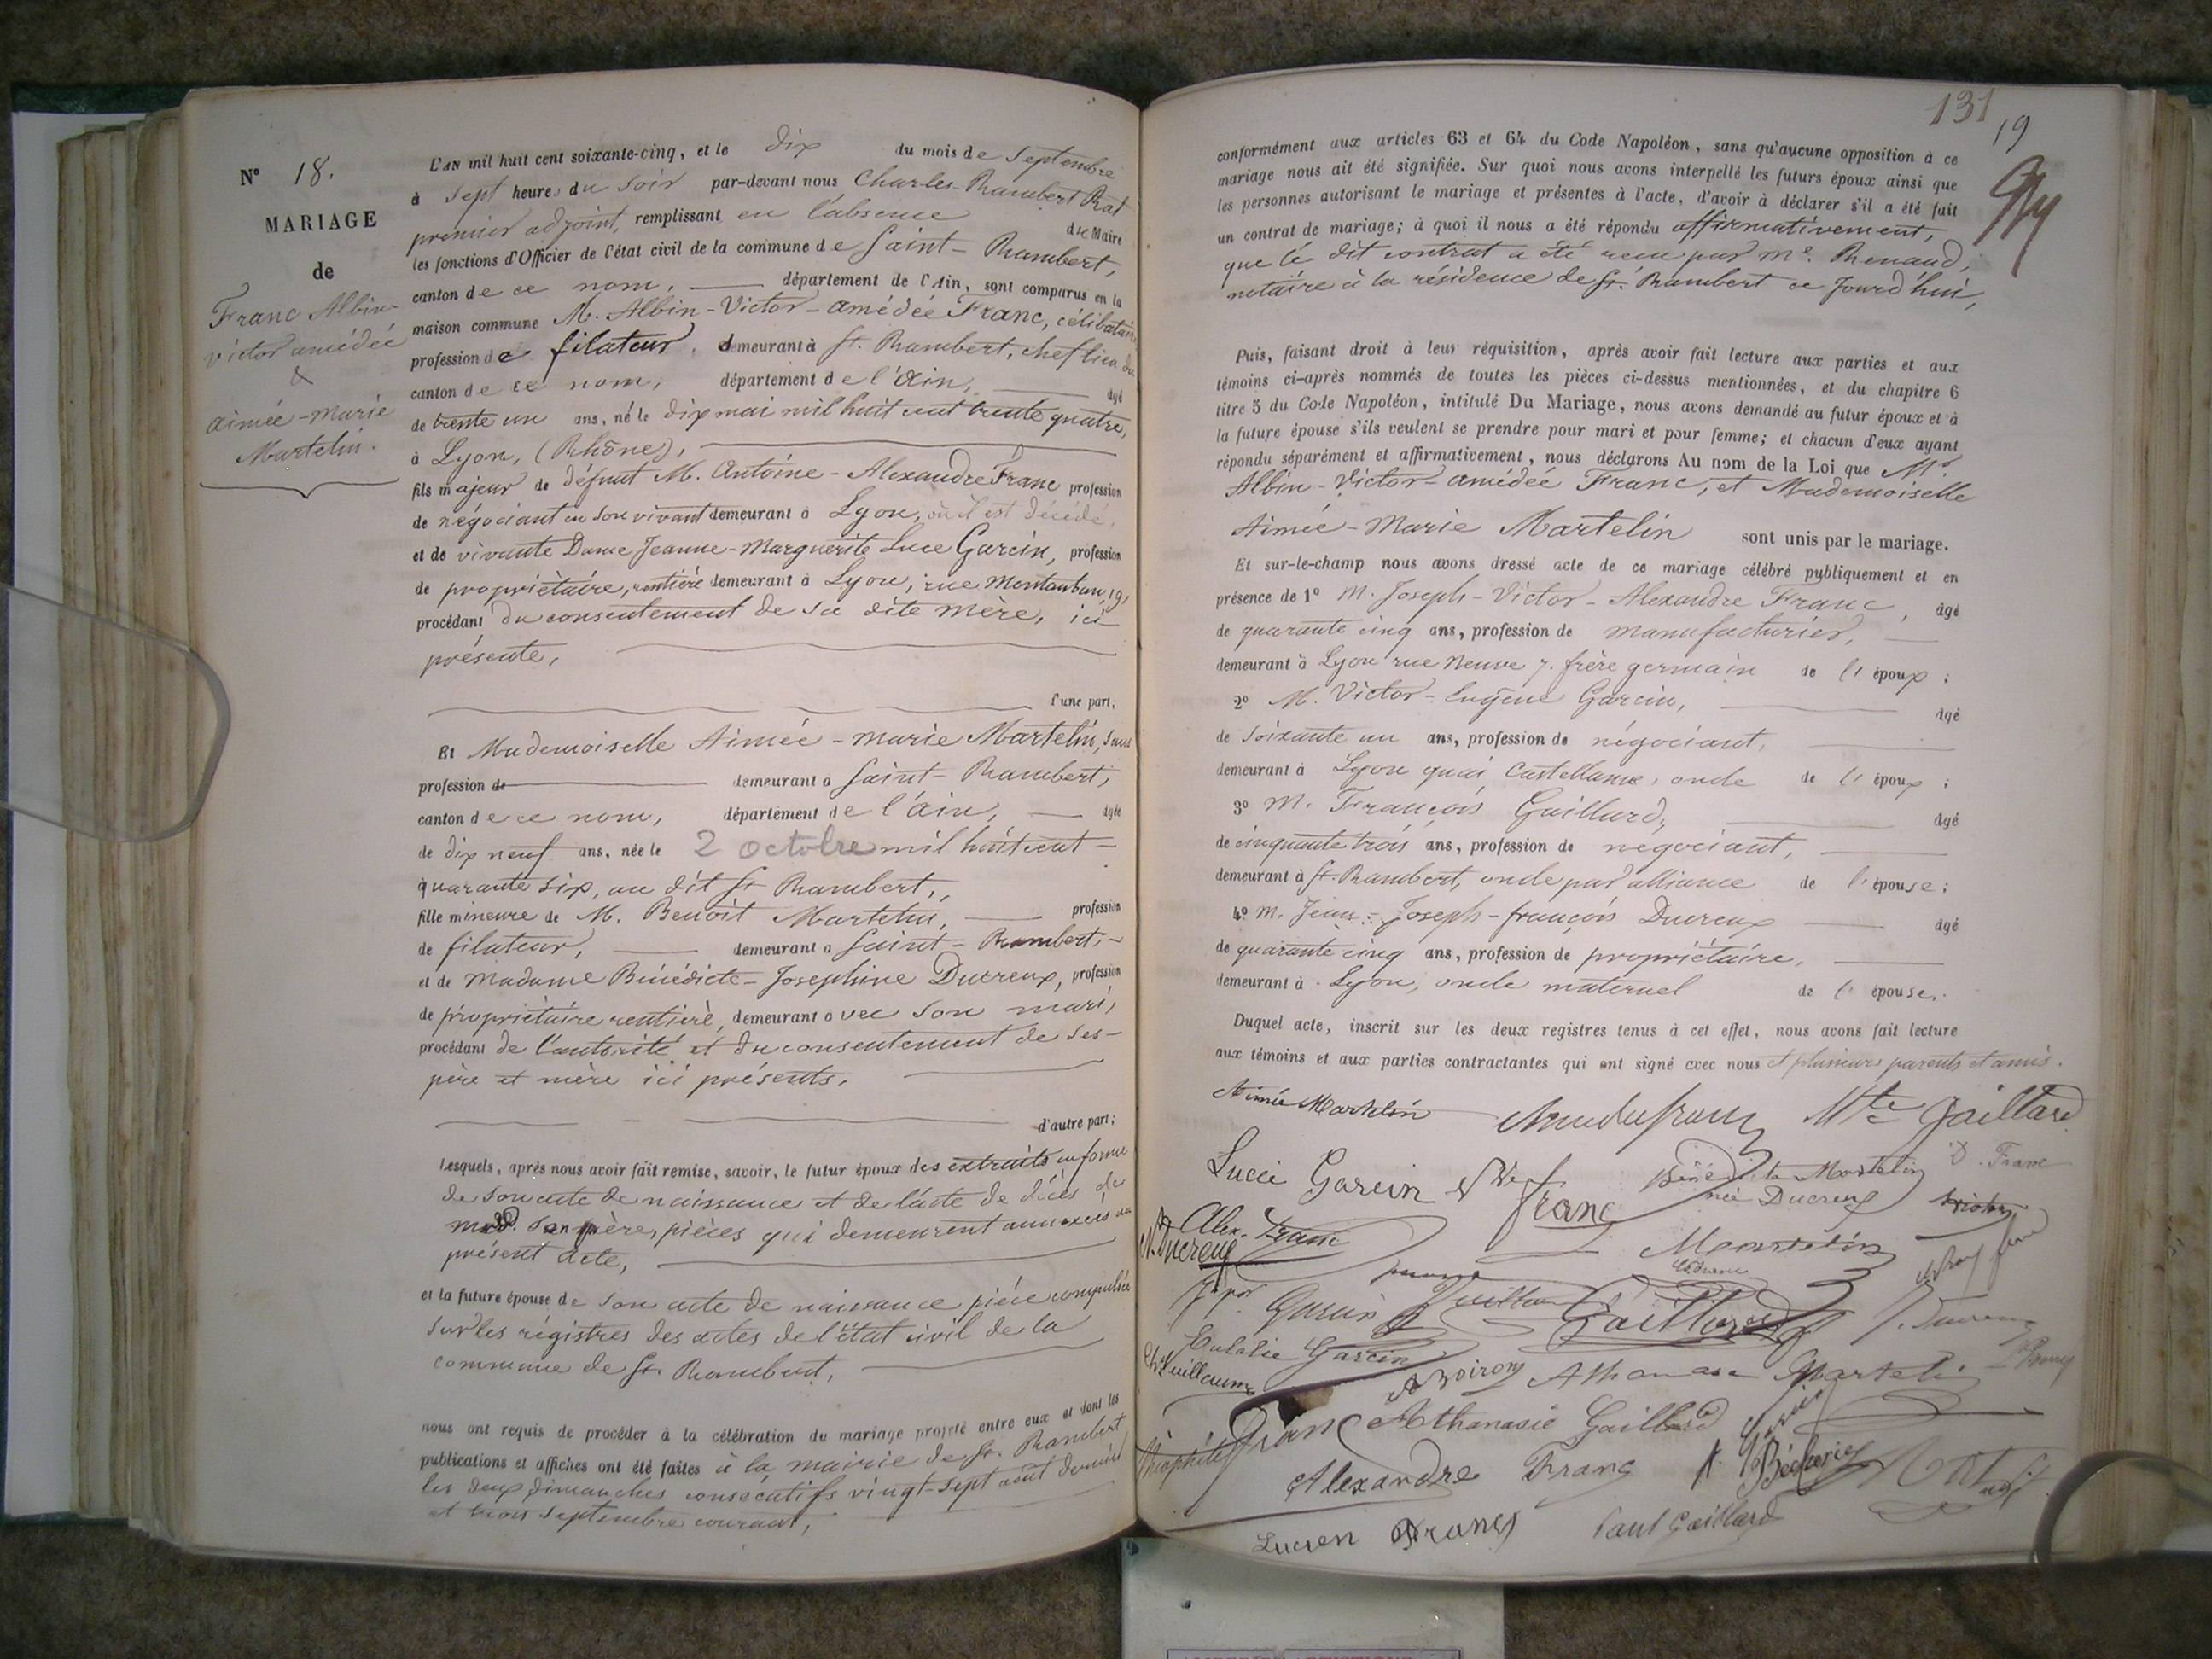 N° 18.
MARIAGE
de
Franc Albin
victor amédée
&
Aimée-Marie
Martelin.
L'AN mil huit cent soixante-cinq, et le dix du mois de Septembre
à Sept heures du Soir par-devant nous Charles Rambert Rat
premier adjoint, remplissant en l'absence du Maire
les fonctions d'Officier de l'état civil de la commune de Saint-Rambert,
canton de ce nom, département de l'Ain, sont comparus en la
maison commune M. Albin-Victor-amédée Franc, célibataire
profession de filateur, demeurant à St. Rambert, chef lieu du
canton de ce nom, département de l'Ain, âgé
de trente un ans, né le dix mai mil huit cent trente quatre,
à Lyon, (Rhône),
fils majeur de défunt M. Antoine-Alexandre Franc profession
de négociant en son vivant demeurant à Lyon, où il est décédé,
et de vivante Dame Jeanne-Marguerite Luce Garcin, profession
de propriétaire, rentière demeurant à Lyon, rue Montauban, 19,
procédant du consentement de sa dite mère, ici
présente,
d'une part;
Et Mademoiselle Aimée-marie Martelin, sans
profession de demeurant à Saint-Rambert,
canton de ce nom, département de l'Ain, âgée
de dix neuf ans, née le 2 octobre mil huit cent
quarante six, au dit St Rambert,
fille mineure de M. Benoit Martelin, profession
de filateur, demeurant à Saint-Rambert,
et de Madame Bénédicte-Josephine Ducreux, profession
de propriétaire rentière, demeurant avec son mari,
procédant de l'autorité et du consentement de ses
père et mère ici présents.
d'autre part;
Lesquels, après nous avoir fait remise, savoir, le futur époux des extraits en forme
de son acte de naissance et de l'acte de décès de
son père, pièces qui demeurent annexées au
présent acte,
et la future épouse de son acte de naissance pièce compulsée
sur les régistres des actes de l'état civil de la
commune de St. Rambert,
nous ont requis de procéder à la célébration du mariage projeté entre eux et dont les
publications et affiches ont été faites à la mairie de St. Rambert
les deux dimanches consécutifs vingt-sept août dernier
et trois Septembre courant,
131
19
conformément aux articles 63 et 64 du Code Napoléon, sans qu'aucune opposition à ce
mariage nous ait été signifiée. Sur quoi nous avons interpellé les futurs époux ainsi que
les personnes autorisant le mariage et présentes à l'acte, d'avoir à déclarer s'il a été fait
un contrat de mariage; à quoi il nous a été répondu affirmativement,
que le dit contrat a été reçu par Me. Renaud,
notaire à la résidence de St. Rambert ce jourd'hui,
Puis, faisant droit à leur réquisition, après avoir fait lecture aux parties et aux
témoins ci-après nommés de toutes les pièces ci-dessus mentionnées, et du chapitre 6
titre 5 du Code Napoléon, intitulé Du Mariage, nous avons demandé au futur époux et à
la future épouse s'ils veulent se prendre pour mari et pour femme; et chacun d'eux ayant
répondu séparément et affirmativement, nous déclarons Au nom de la Loi que Mr.
Albin-Victor-amédée Franc, et Mademoiselle
Aimée-Marie Martelin sont unis par le mariage.
Et sur-le-champ nous avons dressé acte de ce mariage célébré publiquement et en
présence de 1° M. Joseph-Victor-Alexandre Franc, âgé
de quarante cinq ans, profession de manufacturier,
demeurant à Lyon rue Neuve 7. frère germain de l'époux;
2° M. Victor-Eugène Garcin, âgé
de soixante un ans, profession de négociant,
demeurant à Lyon quai Castellanne, oncle de l'époux;
3° M. François Gaillard, âgé
de cinquante trois ans, profession de négociant,
demeurant à St. Rambert, oncle par alliance de l'épouse;
4° M. Jean-Joseph-françois Ducreux âgé
de quarante cinq ans, profession de propriétaire,
demeurant à Lyon, oncle maternel de l'épouse.
Duquel acte, inscrit sur les deux registres tenus à cet effet, nous avons fait lecture
aux témoins et aux parties contractantes qui ont signé avec nous et plusieurs parents et amis.
Aimée Martelin Gaillard
Lucie Garcin Vve franc Bénédicte Martelin née Ducreux Franc
Alex. Franc
Ducreux Martelin
Garcin Gaillard
Eulalie Garcin
Guillaume A Boiron Athanase Martelin
Théophile Franc Athanasie Gaillard
Alexandre Franc
Lucien Franc Paul Gaillard